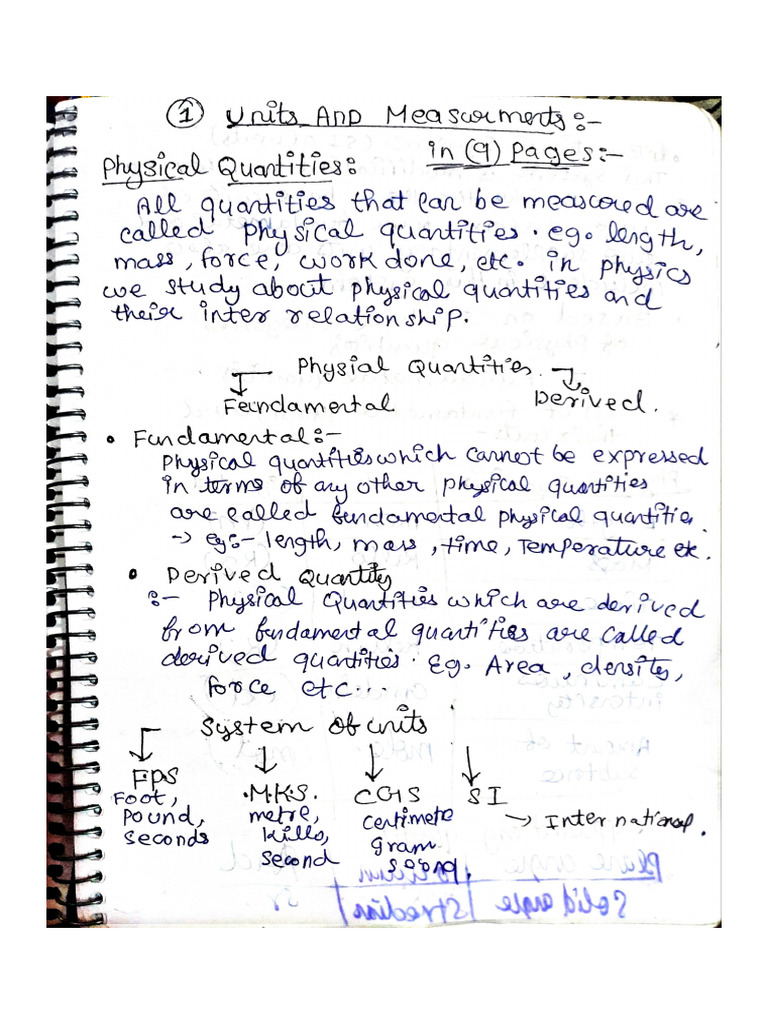 ① Units And Measurments:-
in (9) Pages:-
Physical Quantities:
All quantities that can be measured are
called physical quantities. eg. length,
mass, force, work done, etc. in physics
we study about physical quantities and
their inter relationship.
Physial Quantities.
Feundamental Derived.
• Fundamental:-
Physical quantities which cannot be expressed
in terms of any other physical quantities
are called fundamental physical quantitie
→ eg:- length, mass, time, Temperature etc.
• Derived Quantity
:- Physical Quantities which are derived
from fundamental quantities are called
derived quantities. Eg. Area, density,
force etc...
System of units
FPS M.K.S. CGS SI
Foot, metre, centimete → International.
Pound, kills, gram
seconds second second
Plane angle
Solid angle | Stredian | Sr